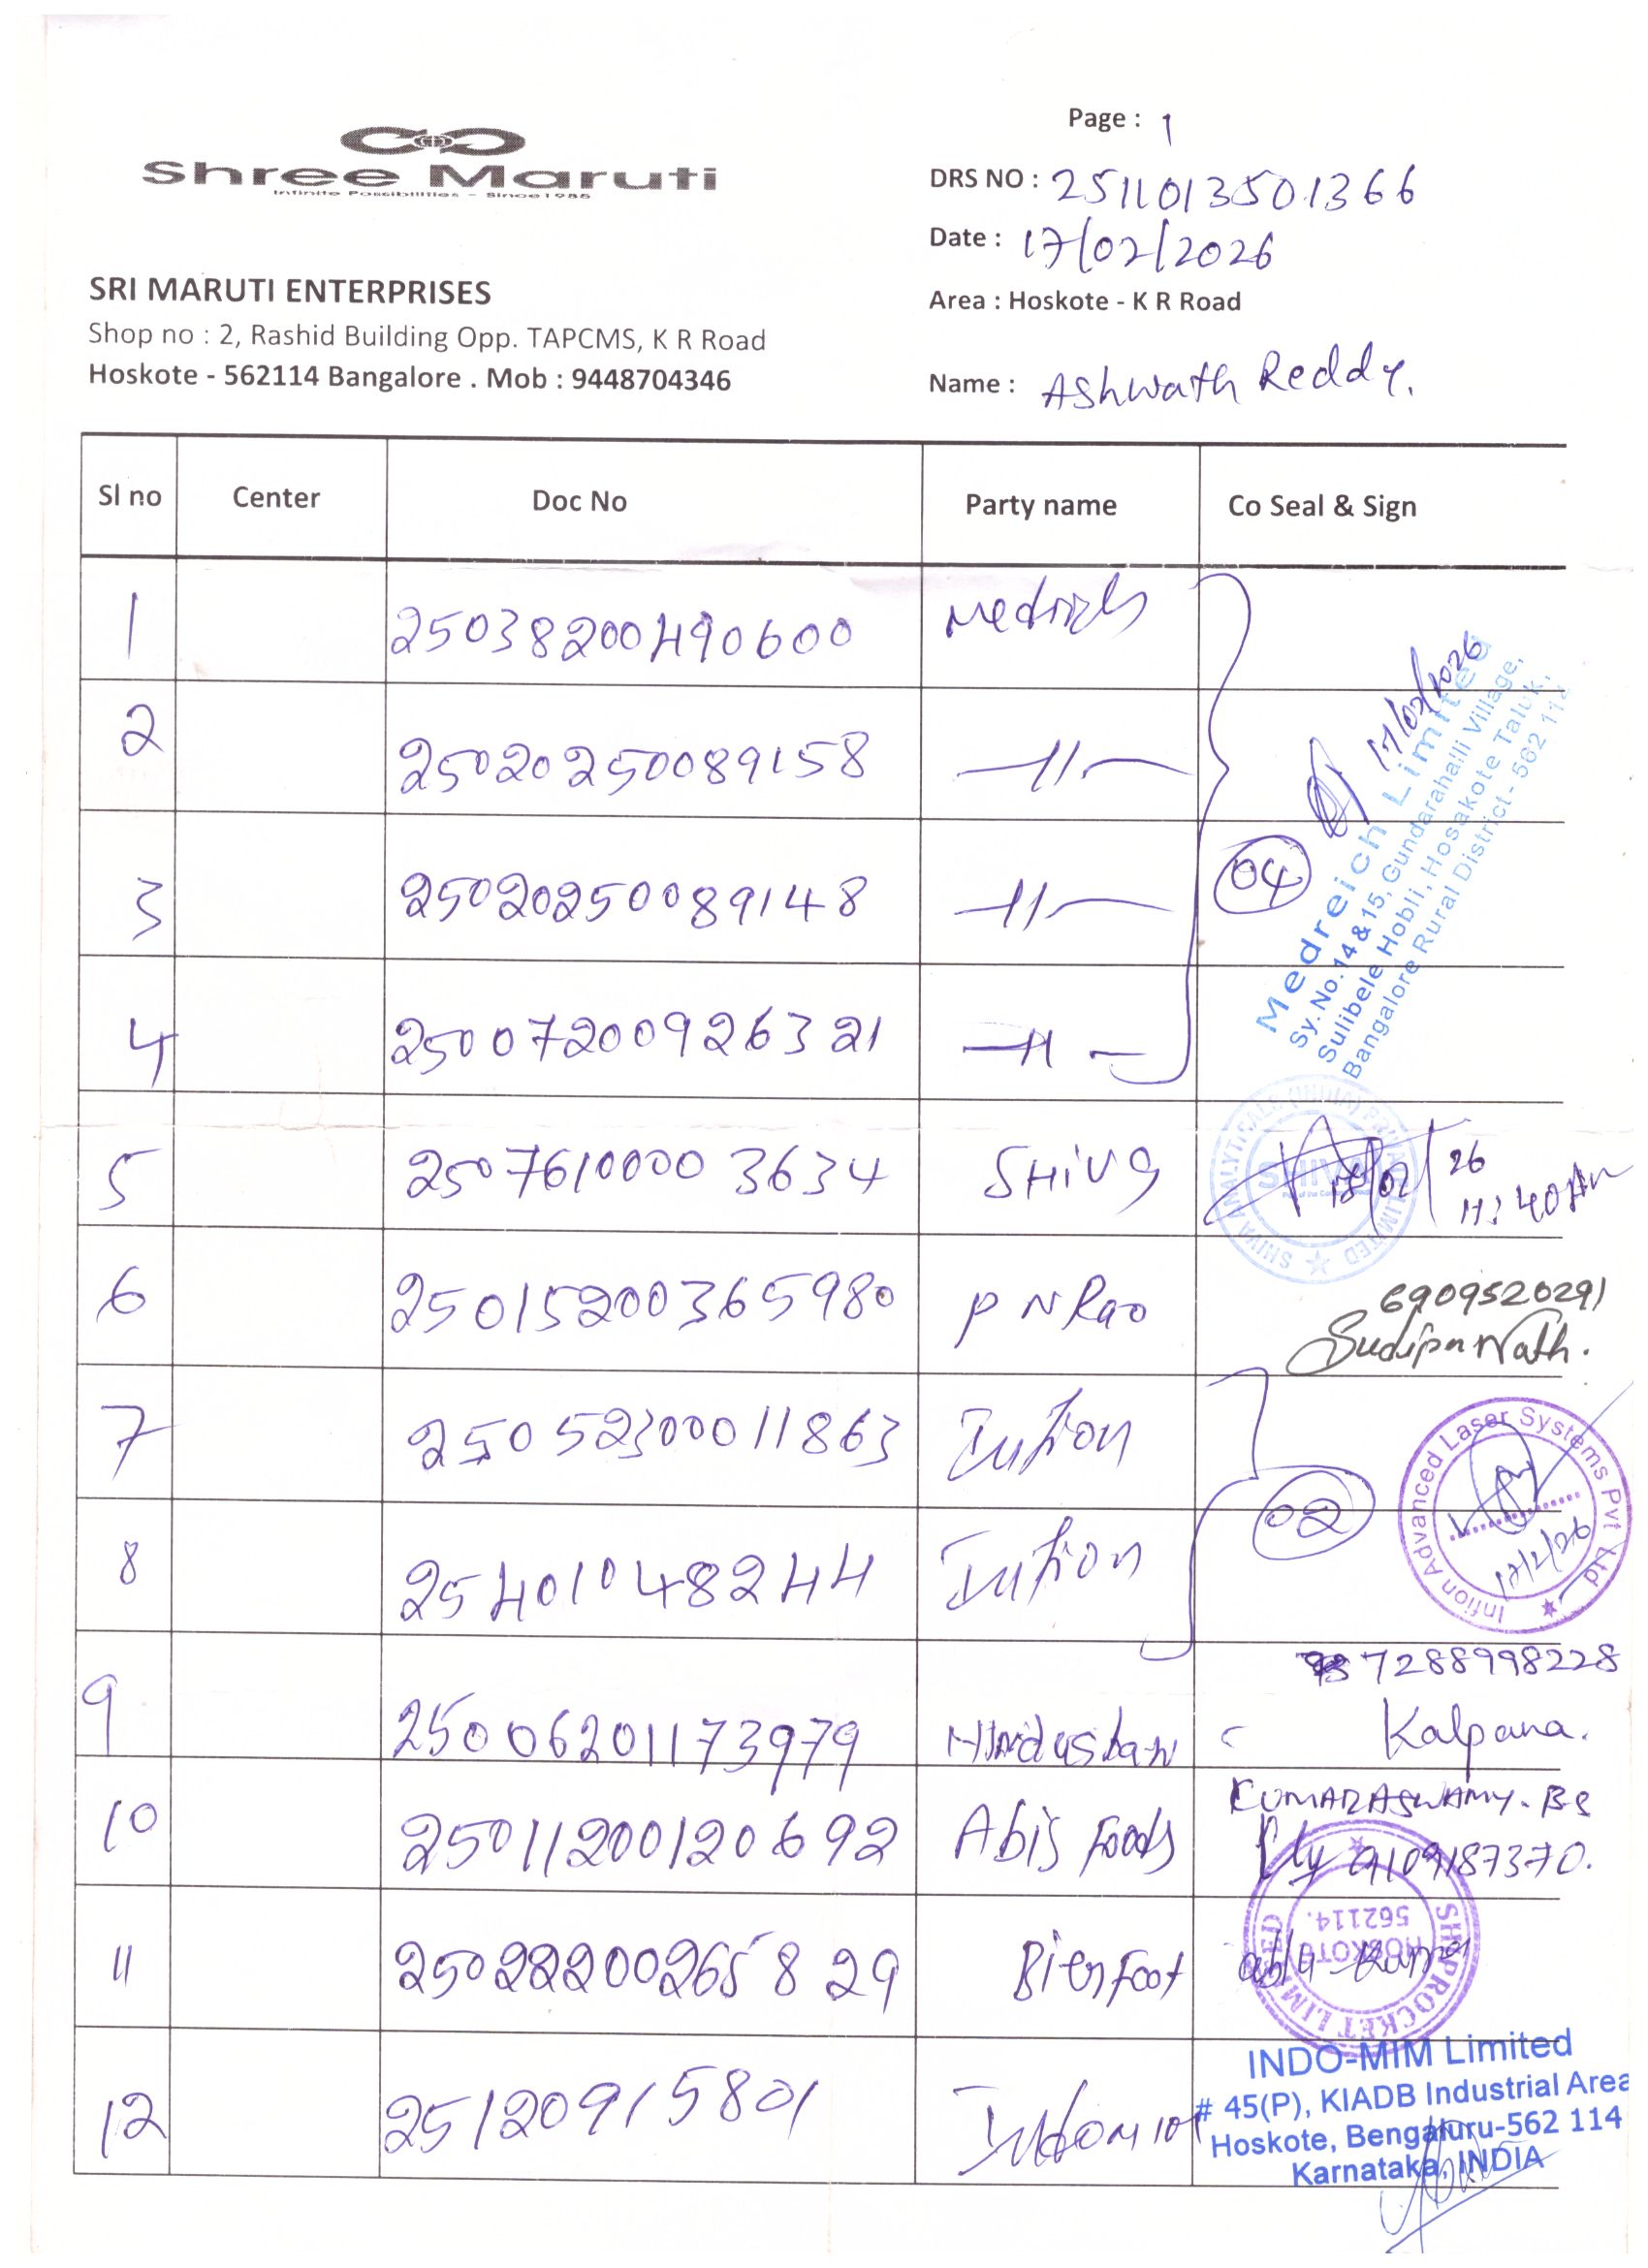 Page : 1
Shree Maruti
Infinite Possibilities - Since1985
DRS NO : 2511013501366
Date : 17/02/2026
SRI MARUTI ENTERPRISES
Area : Hoskote - K R Road
Shop no : 2, Rashid Building Opp. TAPCMS, K R Road
Hoskote - 562114 Bangalore . Mob : 9448704346
Name : Ashwath Reddy.
Sl no Center Doc No Party name Co Seal & Sign
1 25038200490600
2 25020250089158 -11-
3 25020250089148 -11-
4 25007200926321 -11-
04
17/02/2026
Medreich Limited
Sy. No. 14 & 15, Gundarahalli Village,
Sulibele Hobli, Hosakote Taluk,
Bangalore Rural District - 562 114
5 25076100003634 SHIVA
SHIVA ANALYTICALS (INDIA) PRIVATE LIMITED
SHIVA
26
11:40 Am
6 25015200365980 P N Rao
6909520291
Sudipa Nath.
7 25052300011863 Infion
8 25401048244 Infion
02
Infion Advanced Laser Systems Pvt Ltd
17/2/26
9 25006201173979 Hindustan
7288998228
Kalpana.
10 25011200120692 Abis Foods
KUMARASWAMY. BS
9109187370.
11 25022200265829
SHIPROCKET LIMITED
HOSKOTE
562114.
12 25120915801
INDO-MIM Limited
# 45(P), KIADB Industrial Area
Hoskote, Bengaluru-562 114
Karnataka, INDIA